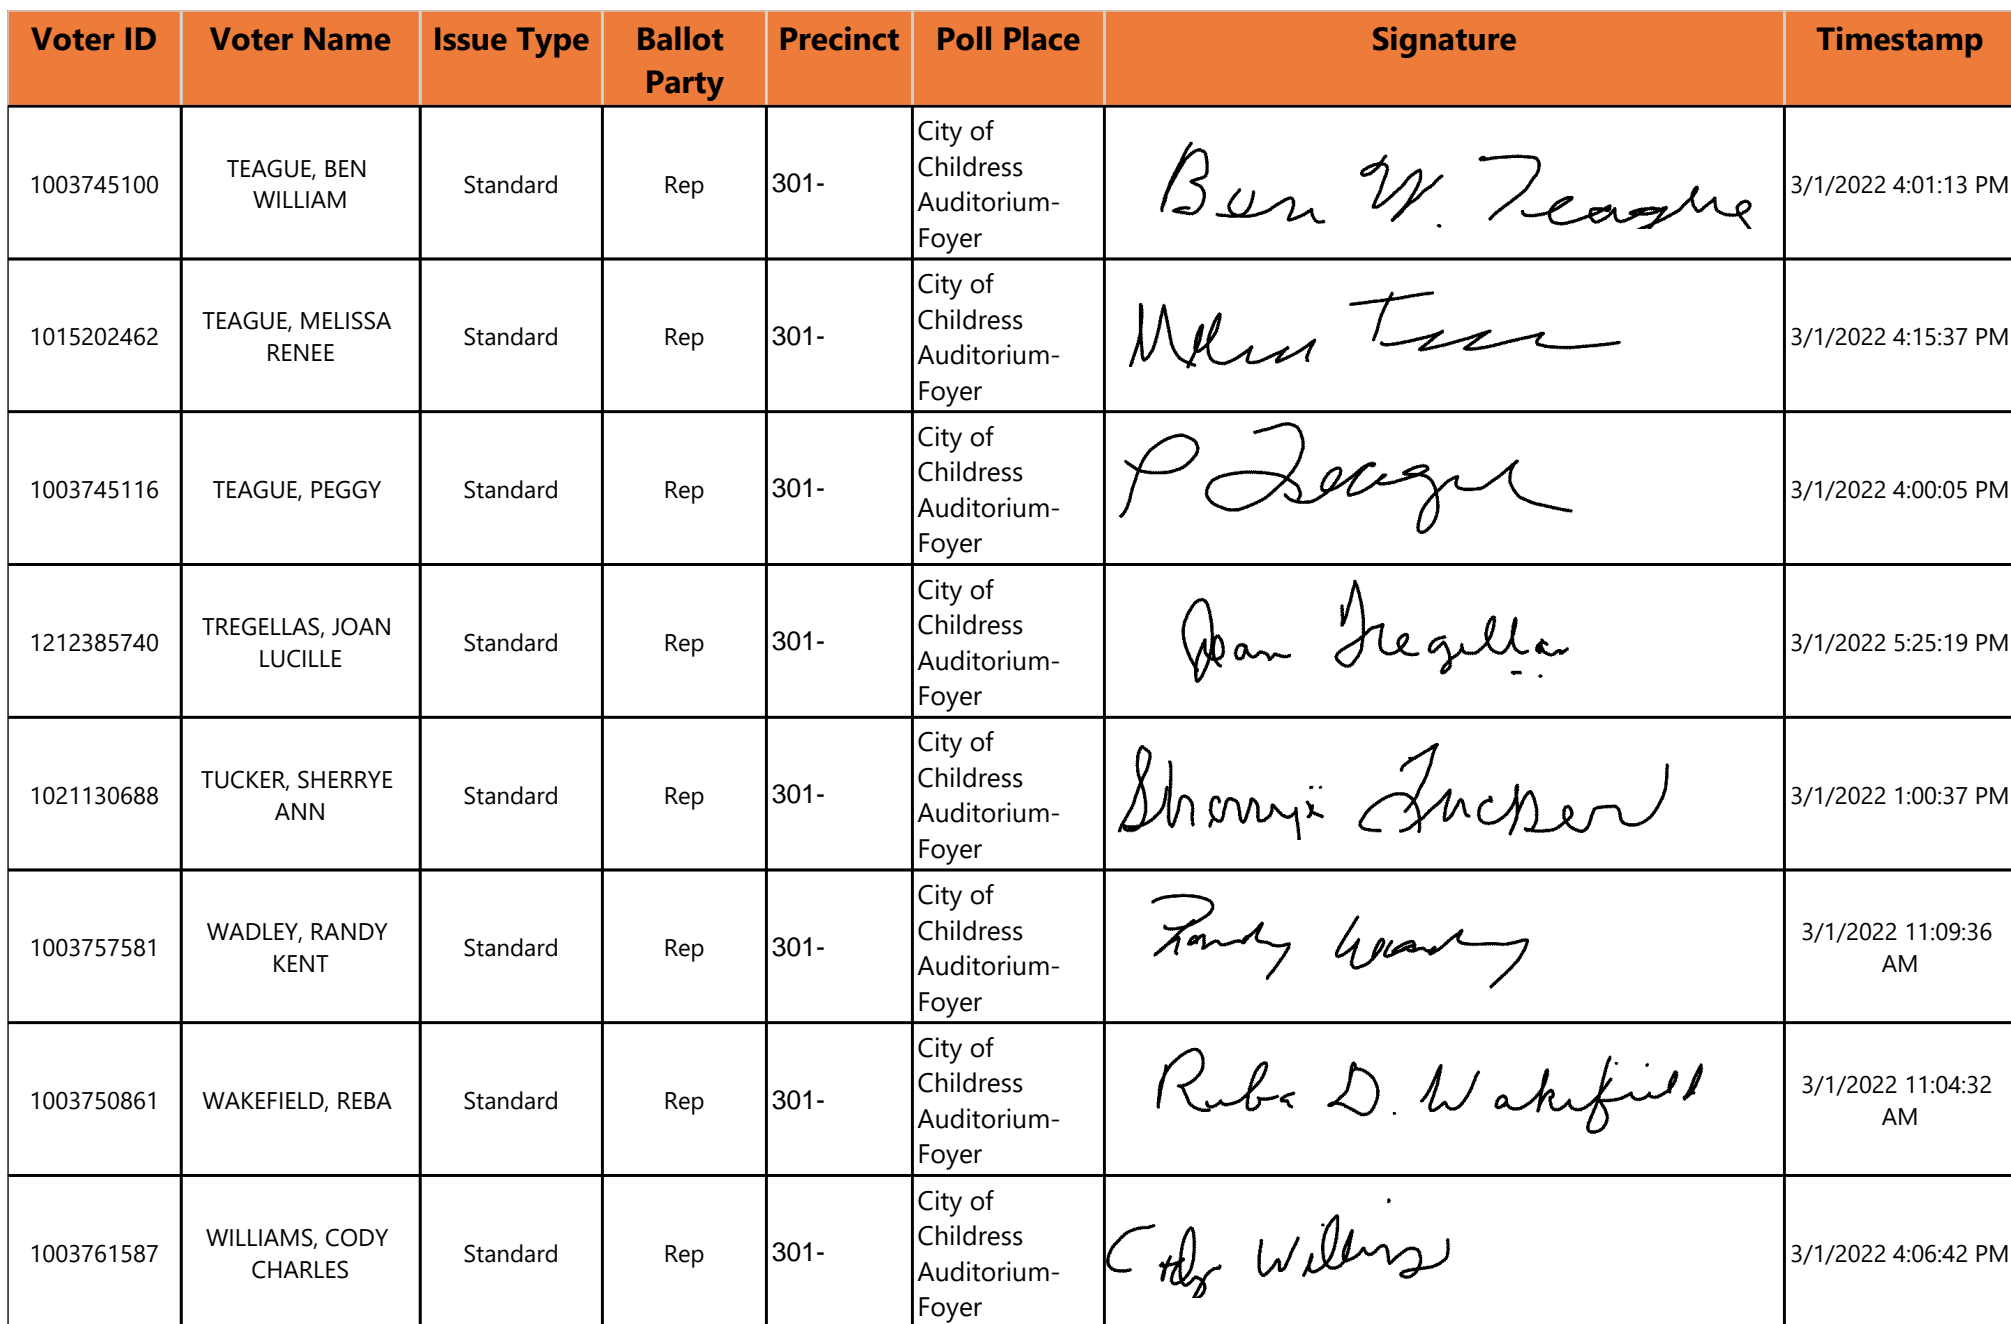 Voter ID Voter Name Issue Type Ballot Party Precinct Poll Place Signature Timestamp
1003745100 TEAGUE, BEN WILLIAM Standard Rep 301- City of Childress Auditorium-Foyer Ben W. Teague 3/1/2022 4:01:13 PM
1015202462 TEAGUE, MELISSA RENEE Standard Rep 301- City of Childress Auditorium-Foyer 3/1/2022 4:15:37 PM
1003745116 TEAGUE, PEGGY Standard Rep 301- City of Childress Auditorium-Foyer P Teague 3/1/2022 4:00:05 PM
1212385740 TREGELLAS, JOAN LUCILLE Standard Rep 301- City of Childress Auditorium-Foyer Joan Tregellas 3/1/2022 5:25:19 PM
1021130688 TUCKER, SHERRYE ANN Standard Rep 301- City of Childress Auditorium-Foyer Sherrye Tucker 3/1/2022 1:00:37 PM
1003757581 WADLEY, RANDY KENT Standard Rep 301- City of Childress Auditorium-Foyer Randy Wadley 3/1/2022 11:09:36 AM
1003750861 WAKEFIELD, REBA Standard Rep 301- City of Childress Auditorium-Foyer Reba D. Wakefield 3/1/2022 11:04:32 AM
1003761587 WILLIAMS, CODY CHARLES Standard Rep 301- City of Childress Auditorium-Foyer Cody Williams 3/1/2022 4:06:42 PM